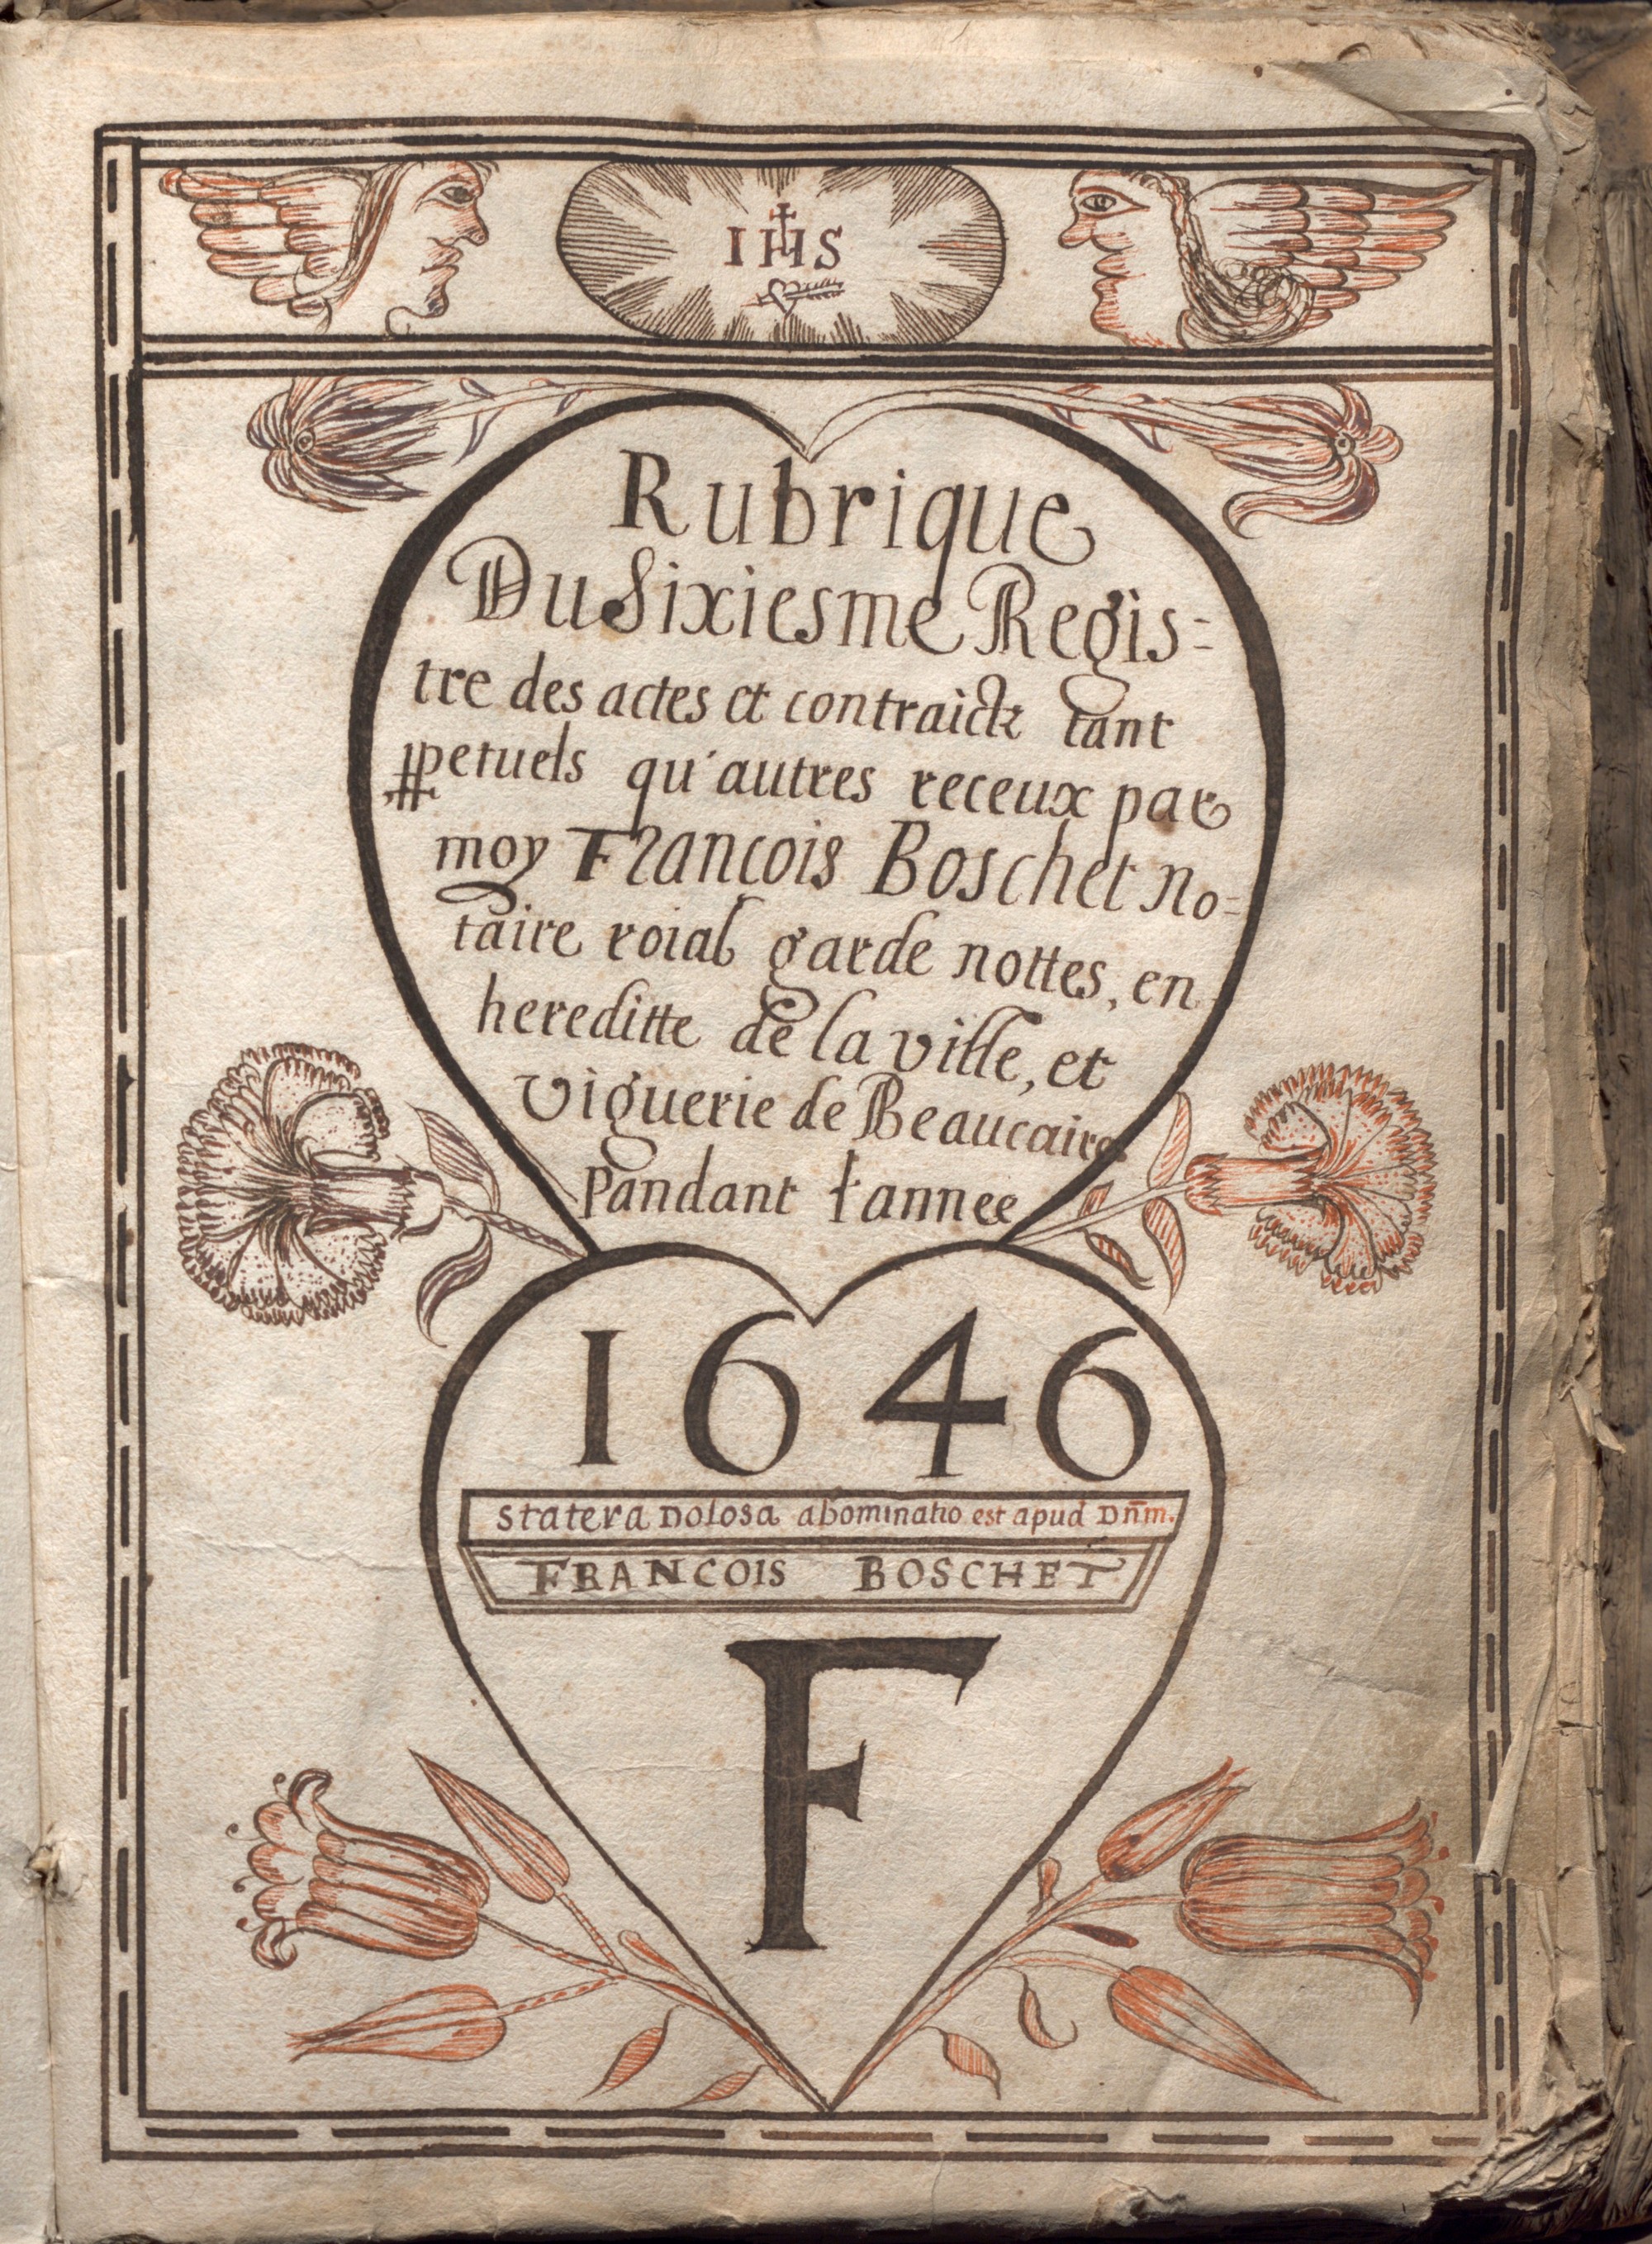 IHS
Rubrique
Du Sixiesme Regis=
tre des actes et contraictz tant
ꝑpetuels qu'autres receux par
moy Francois Boschet no=
taire roial garde nottes, en
hereditte de la ville, et
viguerie de Beaucaire
Pandant l'annee
1646
statera dolosa abominatio est apud Dn̄m.
FRANCOIS BOSCHET
F